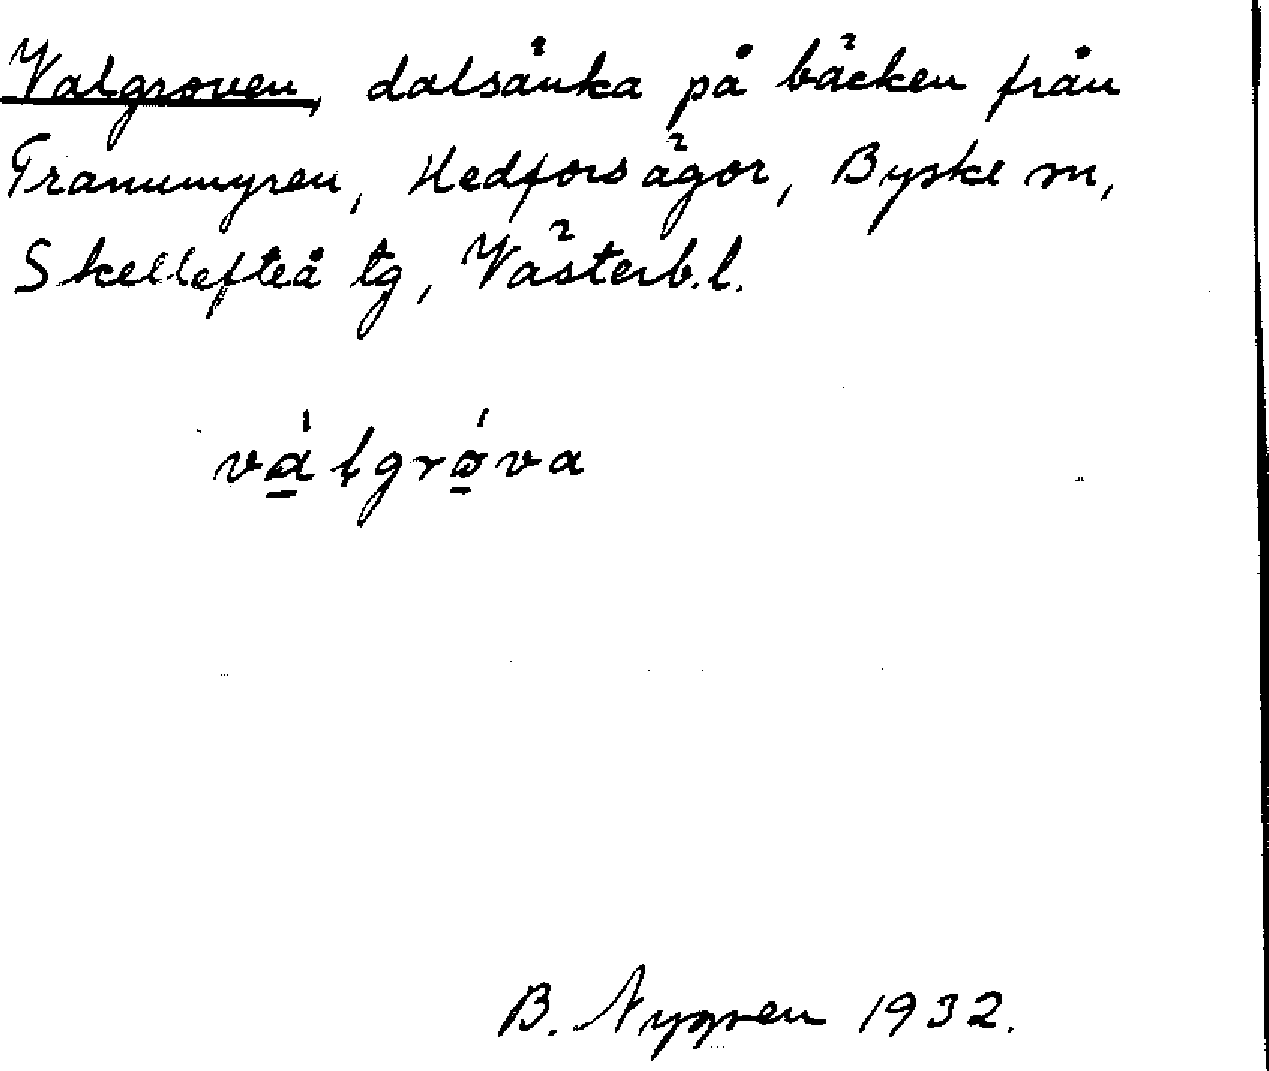 Valgroven, dalsänka på bäcken från
Tranumyren, Hedfors ägor, Byske sn,
Skellefteå tg, Västerb.l.
vа̱́lgrǿ̱va
B. Nygren 1932.